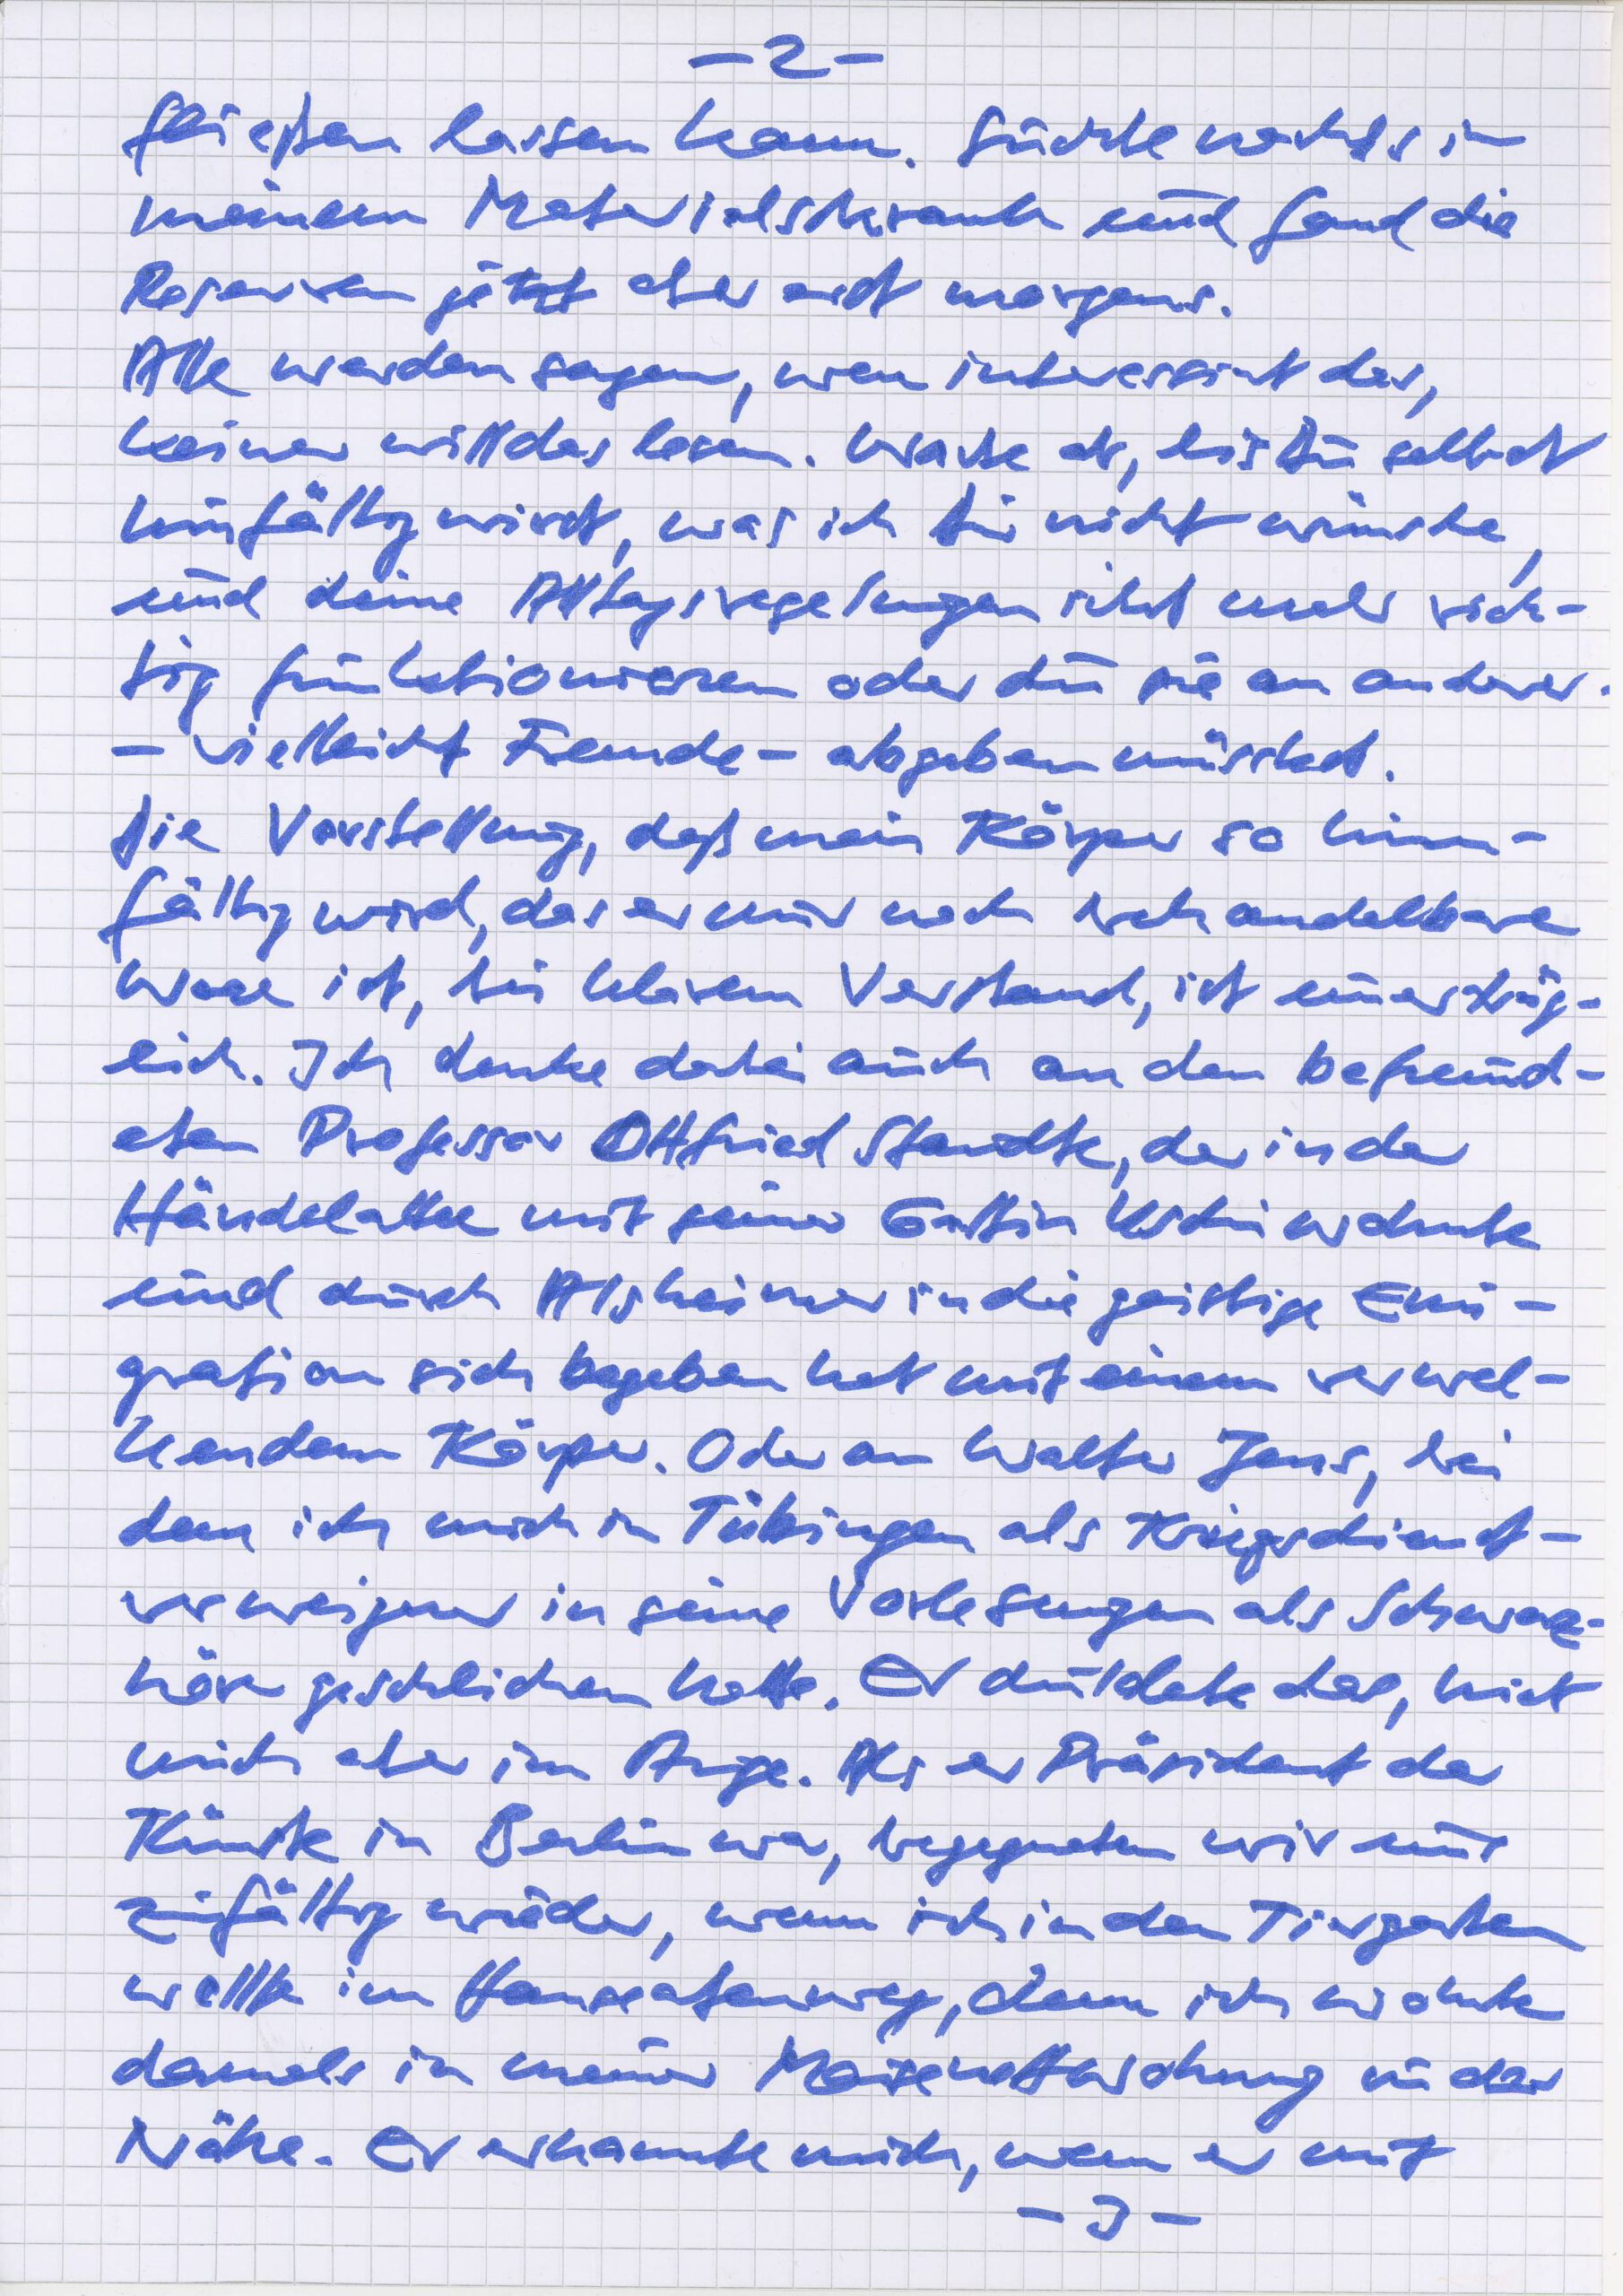 - 2 -
fließen lassen kann. Suchte nachts in
meinem Materialschrank und fand die
Reserven jetzt aber erst morgens.
Alle werden sagen, wen interessiert das,
keiner will das lesen. Warte ab, bis Du selbst
hinfällig wirst, was ich Dir nicht wünsche,
und deine Alltagsregelungen nicht mehr rich-
tig funktionieren oder du sie an andere
– vielleicht Fremde – abgeben müsstest.
Die Vorstellung, daß mein Körper so hin-
fällig wird, das er nur noch behandelbare
Ware ist, bei klarem Verstand, ist unerträg-
lich. Ich denke dabei auch an den befreund-
eten Professor Ottfried Standte, der in der
Händelallee mit seiner Gattin Uschi wohnte
und durch Alsheimer in die geistige Emi-
gration sich begeben hat mit einem verwel-
kendem Körper. Oder an Walter Jens, bei
dem ich mich in Tübingen als Kriegsdienst-
verweigerer in seine Vorlesungen als Schwarz-
hörer geschlichen hatte. Er duldete das, hielt
mich aber im Auge. Als er Präsident der
Künste in Berlin war, begegneten wir uns
zufällig wieder, wenn ich in den Tiergarten
wollte im Hanseatenweg, denn ich wohnte
damals in meiner Maisonettwohnung in der
Nähe. Er erkannte mich, wenn er mit
- 3 -